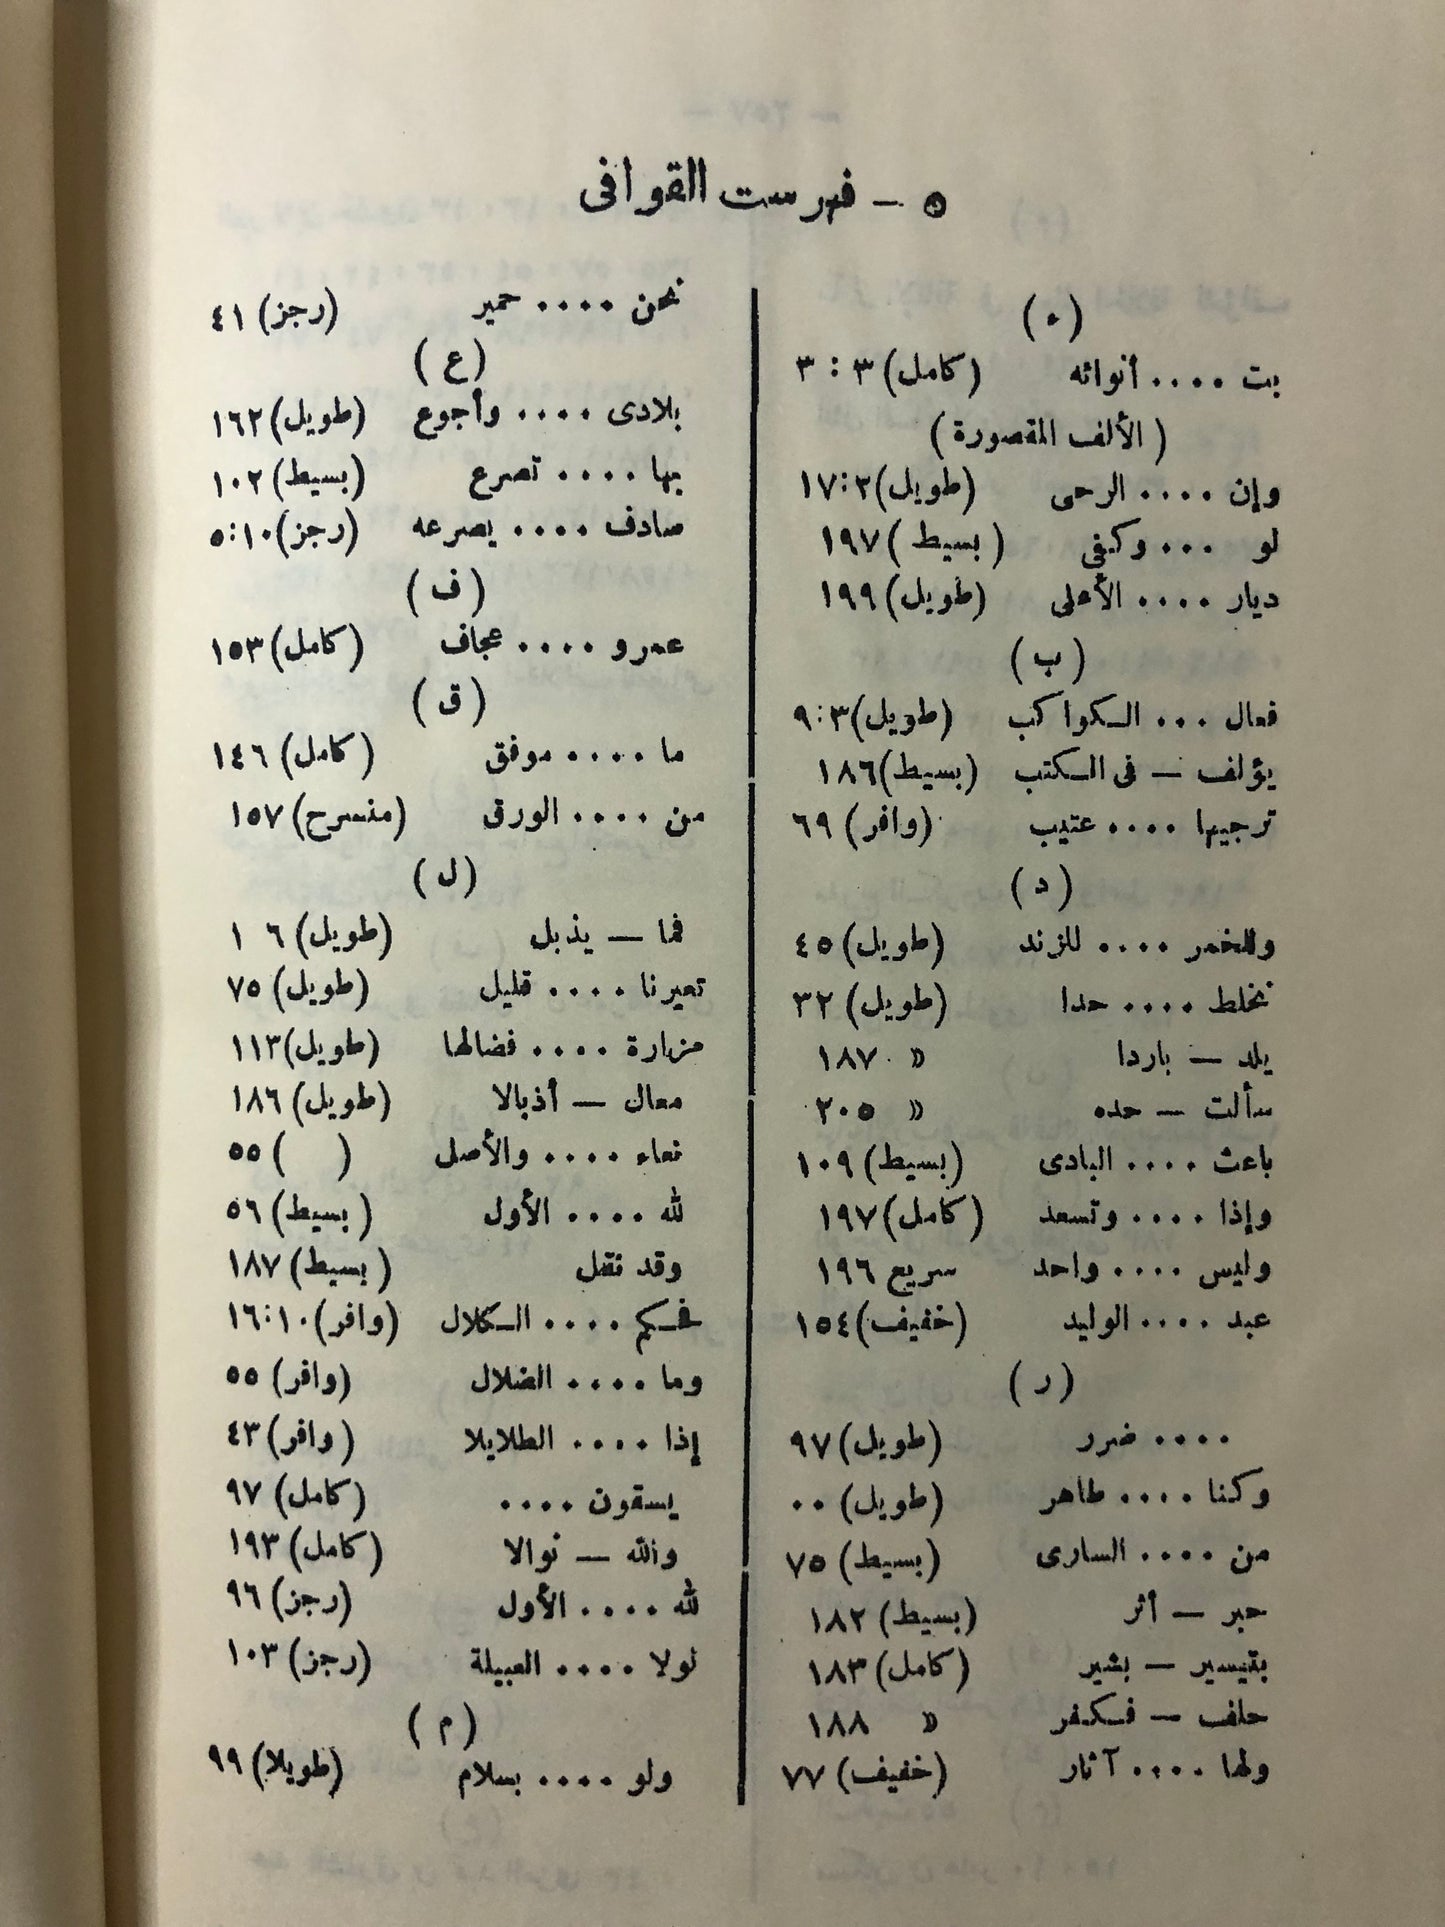 ٥ — فهرست القوافى
(ء)
بت .... أنوائه (كامل) ٣ : ٣
(الألف المقصورة)
وإن .... الرحى (طويل) ١٧:٢
لو ... وكفى (بسيط) ١٩٧
ديار .... الأعلى (طويل) ١٩٩
(ب)
فعال ... الكواكب (طويل) ٩:٣
يؤلف — فى الكتب (بسيط) ١٨٦
ترجيها .... عتيب (وافر) ٦٩
(د)
وللخمر .... للزند (طويل) ٤٥
نخلط .... حدا (طويل) ٣٢
يلد — باردا » ١٨٧
سألت — حده » ٢٠٥
باعث .... البادى (بسيط) ١٠٩
وإذا .... وتسعد (كامل) ١٩٧
وليس .... واحد سريع ١٩٦
عبد .... الوليد (خفيف) ١٥٤
(ر)
.... ضرر (طويل) ٩٧
وكنا .... طاهر (طويل) ٠٠
من .... السارى (بسيط) ٧٥
حبر — أثر (بسيط) ١٨٢
بتيسير — بشير (كامل) ١٨٣
حلف — فكفر » ١٨٨
ولها .... آثار (خفيف) ٧٧
نحن .... حمير (رجز) ٤١
(ع)
بلادى .... وأجوع (طويل) ١٦٢
بها .... تصرع (بسيط) ١٠٢
صادف .... يصرعه (رجز) ٥:١٠
(ف)
عمرو .... عجاف (كامل) ١٥٣
(ق)
ما .... موفق (كامل) ١٤٦
من .... الورق (منسرح) ١٥٧
(ل)
فما — يذبل (طويل) ٦ ١
تعيرنا .... قليل (طويل) ٧٥
مزارة .... فضالها (طويل) ١١٣
معال — أذبالا (طويل) ١٨٦
نعاء .... والأصل ( ) ٥٥
لله .... الأول (بسيط) ٥٦
وقد نقل (بسيط) ١٨٧
فحكم .... الكلال (وافر) ١٦:١٠
وما .... الضلال (وافر) ٥٥
إذا .... الطلايلا (وافر) ٤٣
يسقون .... (كامل) ٩٧
والله — نوالا (كامل) ١٩٣
لله .... الأول (رجز) ٩٦
لولا .... العبيلة (رجز) ١٠٣
(م)
ولو .... بسلام (طويلا) ٩٩